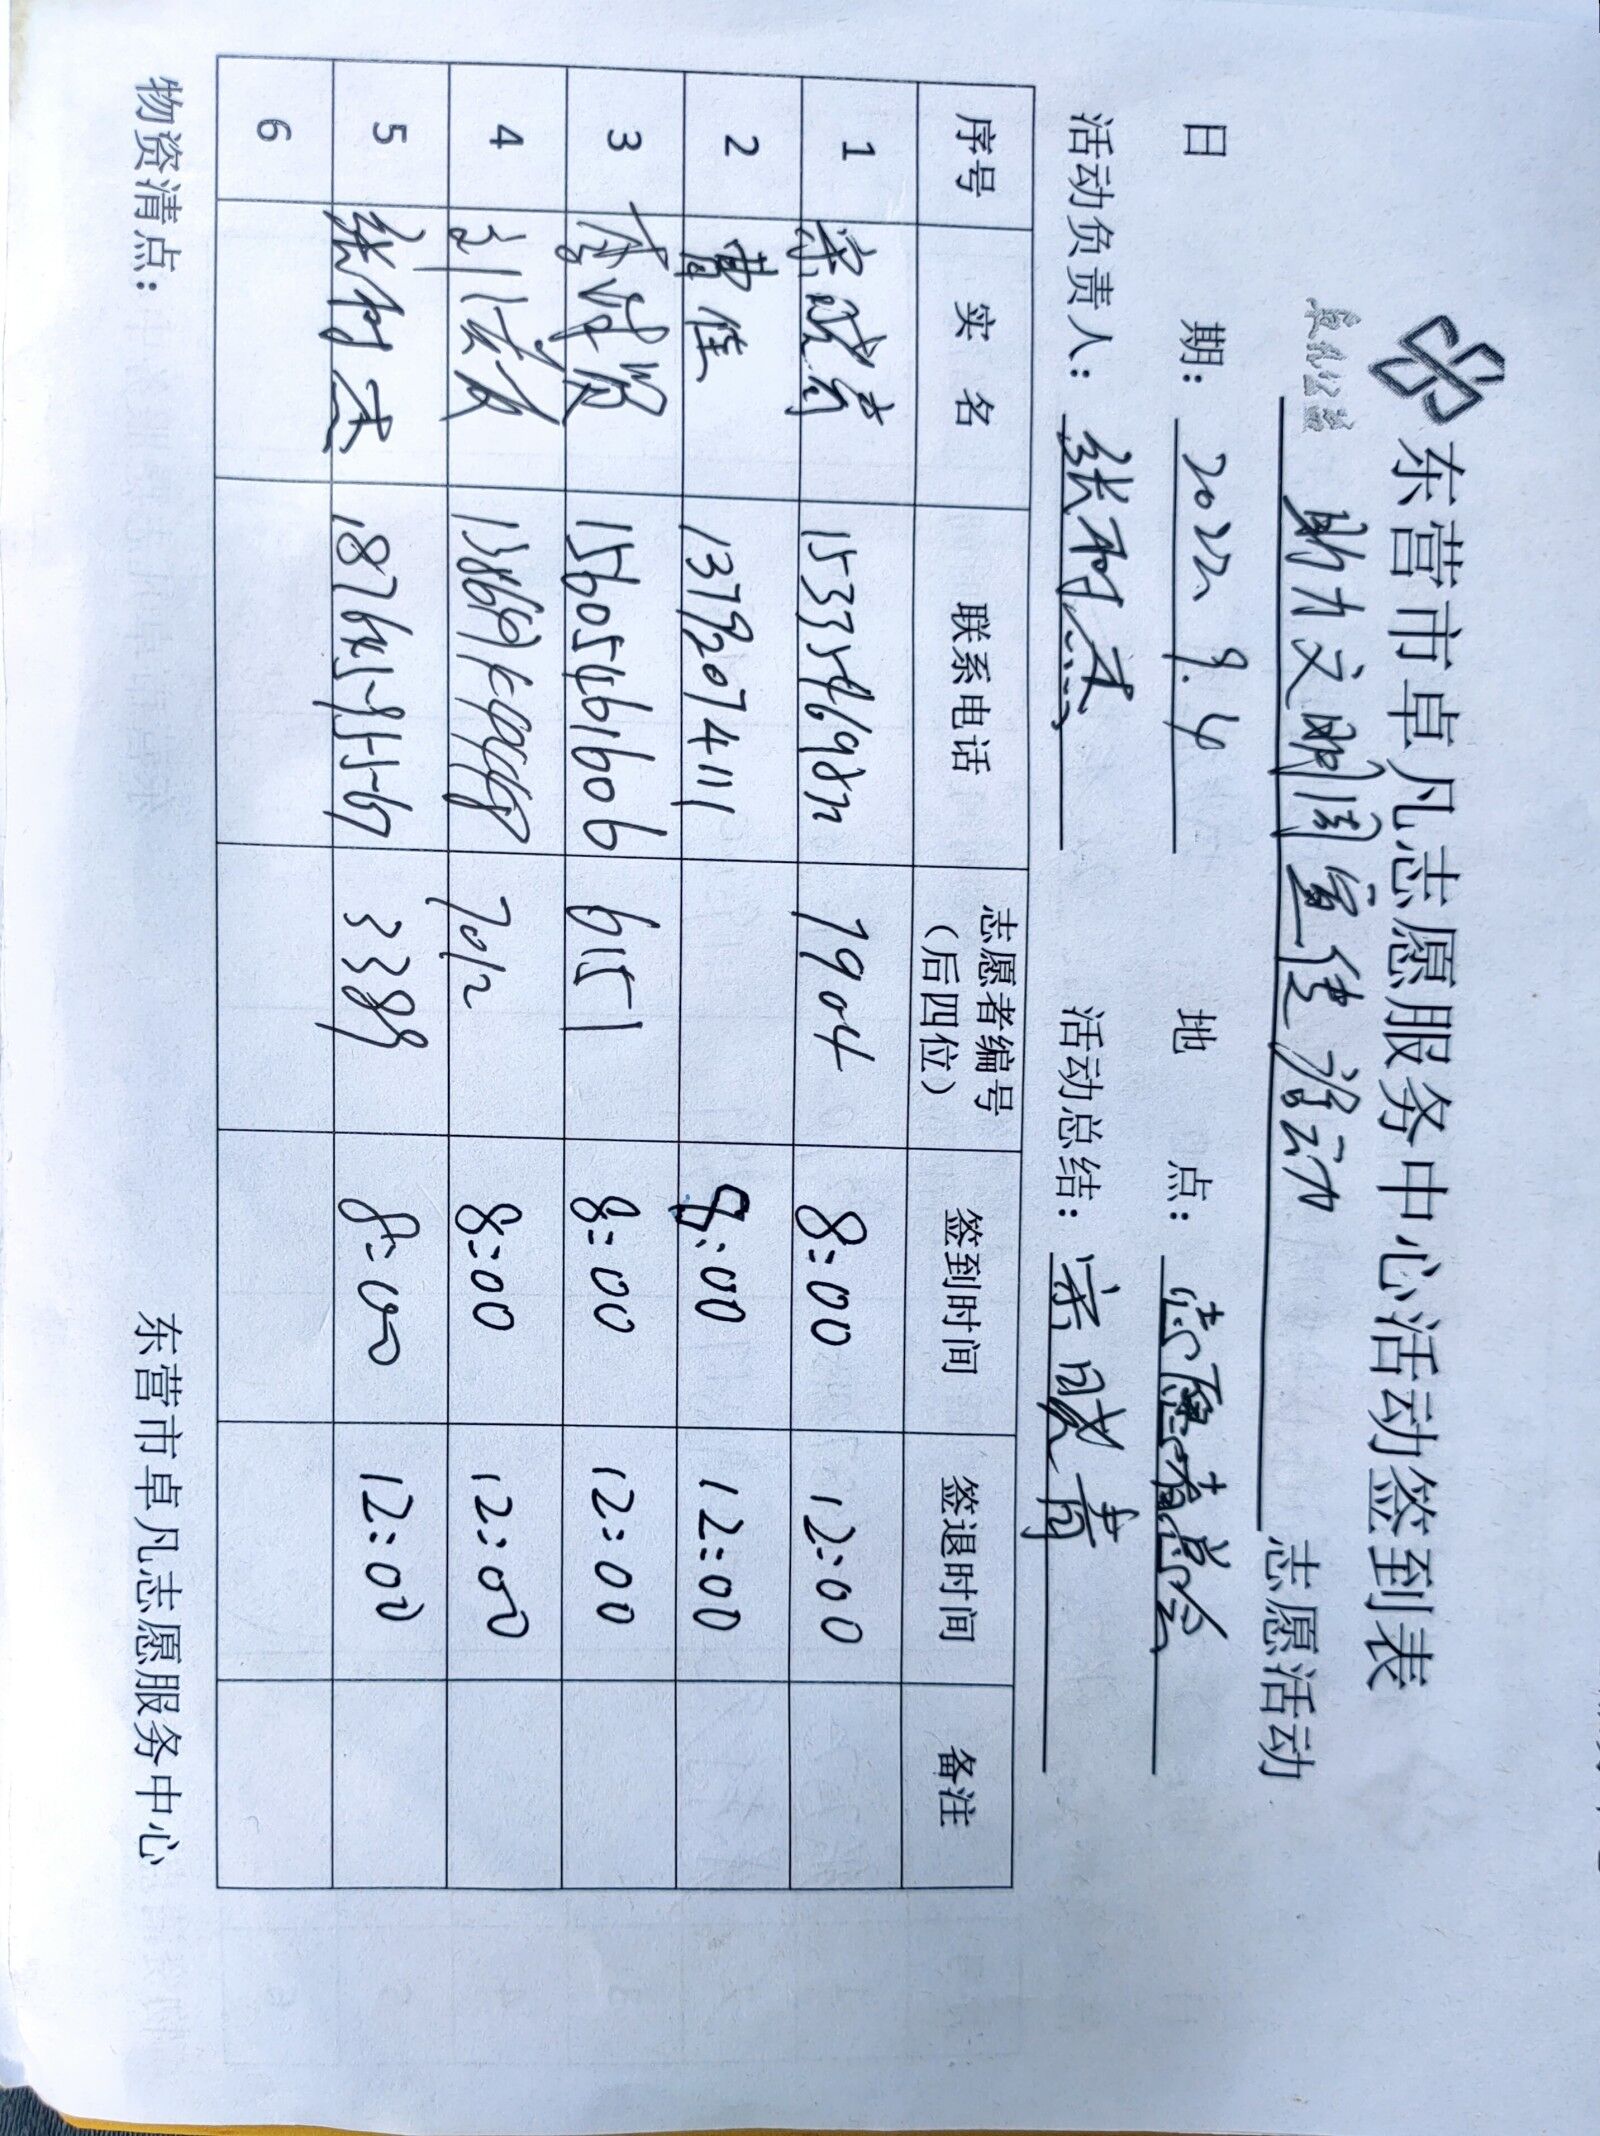 卓凡公益
东营市卓凡志愿服务中心活动签到表
助力文明創宣传活动志愿活动
日 期: 2022.9.4 地 点:
活动负责人: 张树杰 活动总结: 宋成青
序号 实 名 联系电话 志愿者编号(后四位) 签到时间 签退时间 备注
1 宋成青 1904 8:00 12:00
2 曹佳 13792074111 8:00 12:00
3 15605461606 6151 8:00 12:00
4 7012 8:00 12:00
5 张树杰 3389 8:00 12:00
6
物资清点:
东营市卓凡志愿服务中心